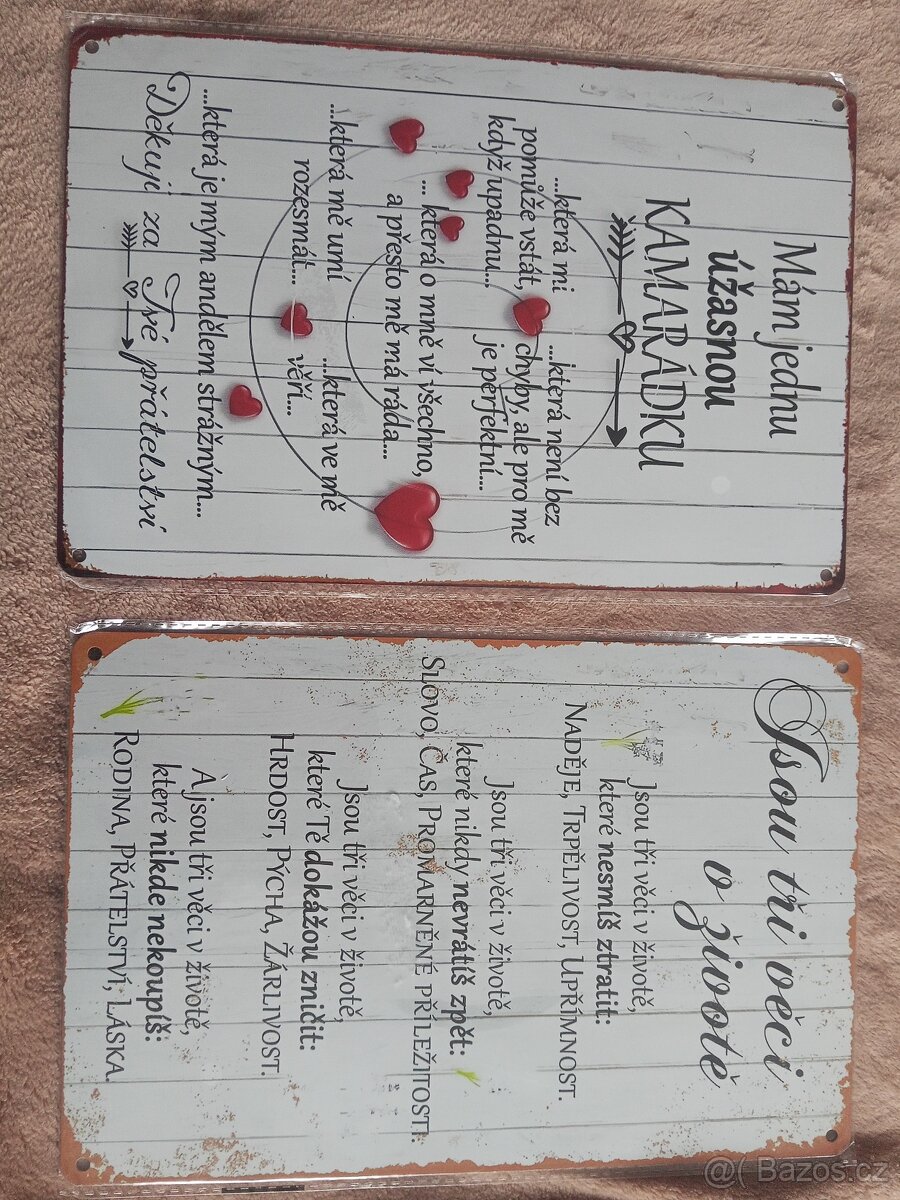 Mám jednu
úžasnou
KAMARÁDKU
...která mi
pomůže vstát,
když upadnu...
...která není bez
chyby, ale pro mě
je perfektní...
... která o mně ví všechno,
a přesto mě má ráda...
...která mě umí
rozesmát...
...která ve mě
věří...
...která je mým andělem strážným...
Děkuji za Tvé přátelství
Jsou tři věci
v životě
Jsou tři věci v životě,
které nesmíš ztratit:
NADĚJE, TRPĚLIVOST, UPŘÍMNOST.
Jsou tři věci v životě,
které nikdy nevrátíš zpět:
SLOVO, ČAS, PROMARNĚNÉ PŘÍLEŽITOSTI.
Jsou tři věci v životě,
které Tě dokážou zničit:
HRDOST, PÝCHA, ŽÁRLIVOST.
A jsou tři věci v životě,
které nikde nekoupíš:
RODINA, PŘÁTELSTVÍ, LÁSKA.
@( Bazos.cz